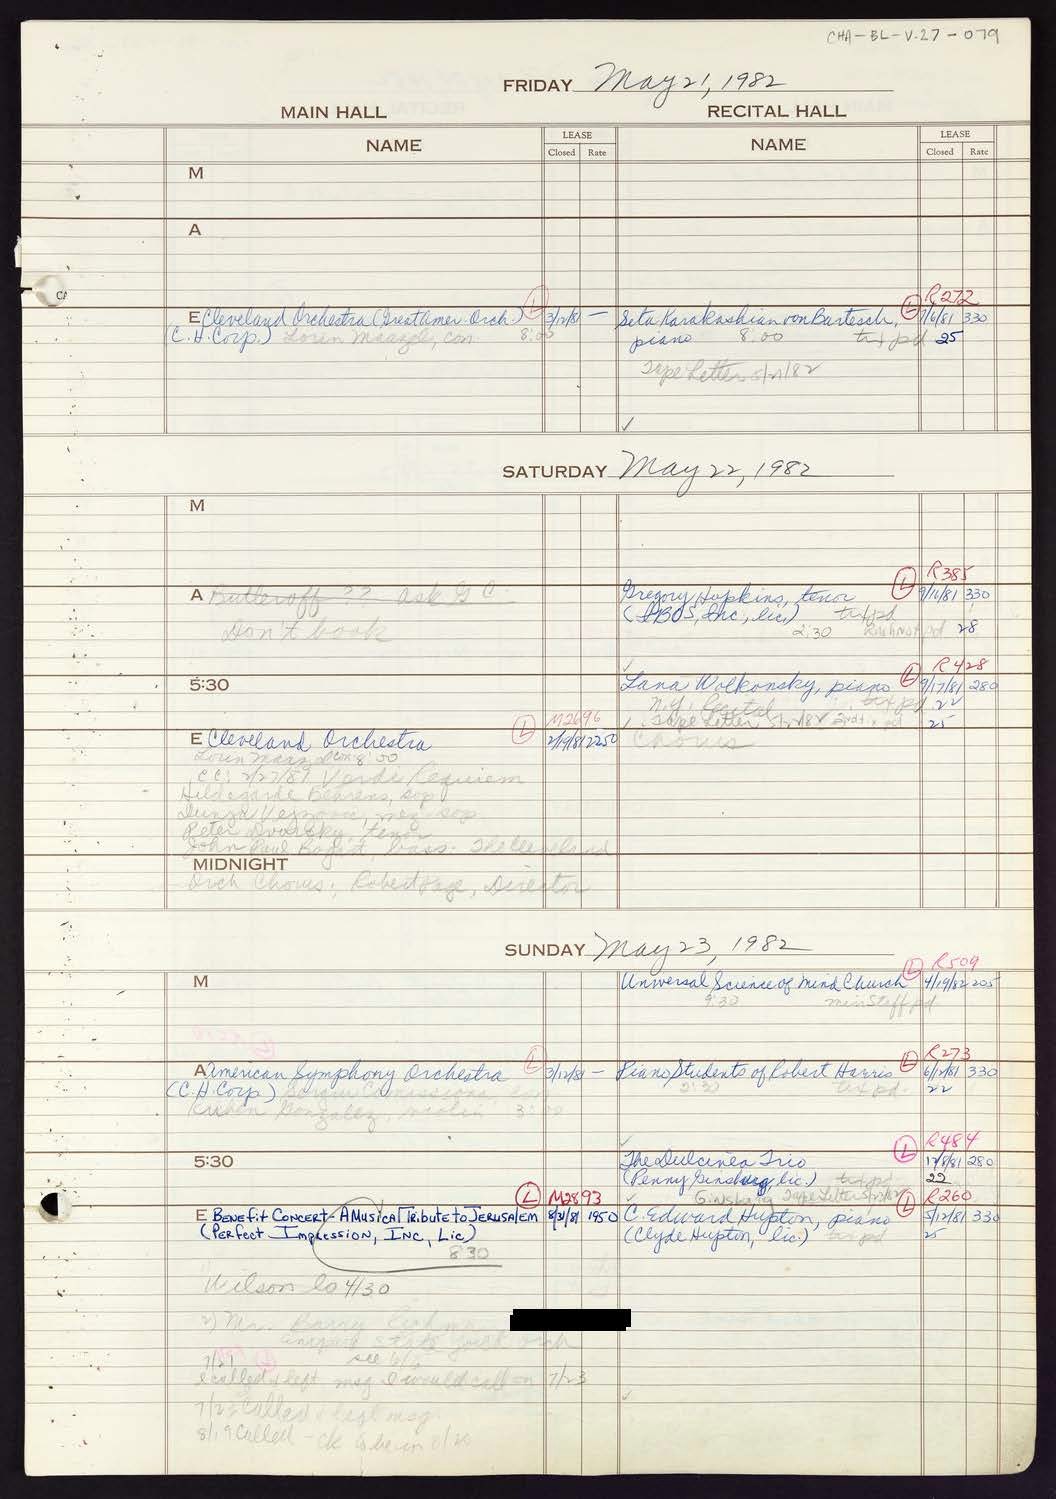 CHA-BL-V.27-079
FRIDAY May 21, 1982
MAIN HALL
RECITAL HALL
NAME
LEASE
Closed Rate
NAME
LEASE
Closed Rate
M
A
E Cleveland Orchestra (Great Amer. Orch.) L 3/12/81 —
C.H. Corp.) Lorin Maazel, con 8:00
R272
Seta Karakashian von Bartesch, L 7/6/81 330
piano 8:00 tix pd 25
Tape Letter 5/21/82
SATURDAY May 22, 1982
M
A Butleroff ?? ask G C.
Don't book
R385
Gregory Hopkins, tenor L 9/16/81 330
(IBOS, Inc., lic.) tix pd
2:30 pd 28
5:30
R428
Lana Wolkonsky, piano L 9/17/81 280
N.Y. Recital tix pd 22
Tape Letter 2nd tix pd 25
M2696
E Cleveland Orchestra L 2/19/81 2250
Chorus
Lorin Maazel con 8:00
CC: 2/27/81 Verdi Requiem
Hildegarde Behrens, sop
Dunja Vejzovic, mez-sop
Peter Dvorsky, tenor
John Paul Bogart, bass: The Cleveland
MIDNIGHT
Orch Chorus; Robert Page, Director
SUNDAY May 23, 1982
M
R509
Universal Science of Mind Church L 4/19/82 205
9:30 min Staff pd
A American Symphony Orchestra L 3/12/81 —
(C.H. Corp) Sergiu Comissiona, con
Ruben Gonzalez, violin 3:00
R273
Piano Students of Robert Harris L 6/12/81 330
2:30 tix pd. 22
5:30
R484
The Dulcinea Trio L 280
(Penny Ginsburg, lic.) tix pd 22
Ginsberg Tape Letter
M2893
E Benefit Concert - A Musical Tribute to Jerusalem L 8/31/81 1950
(Perfect Impression, Inc, Lic)
830
R260
C. Edward Hupton, piano L 5/12/81 330
(Clyde Hupton, lic.) tix pd 25
Wilson lo 4/30
2) Mr. Barry
State Youth Orch
7/21 see 6/6
I called & left msg I would call on 7/23
7/23 Called & left msg.
8/19 Called - ck to be in 8/20